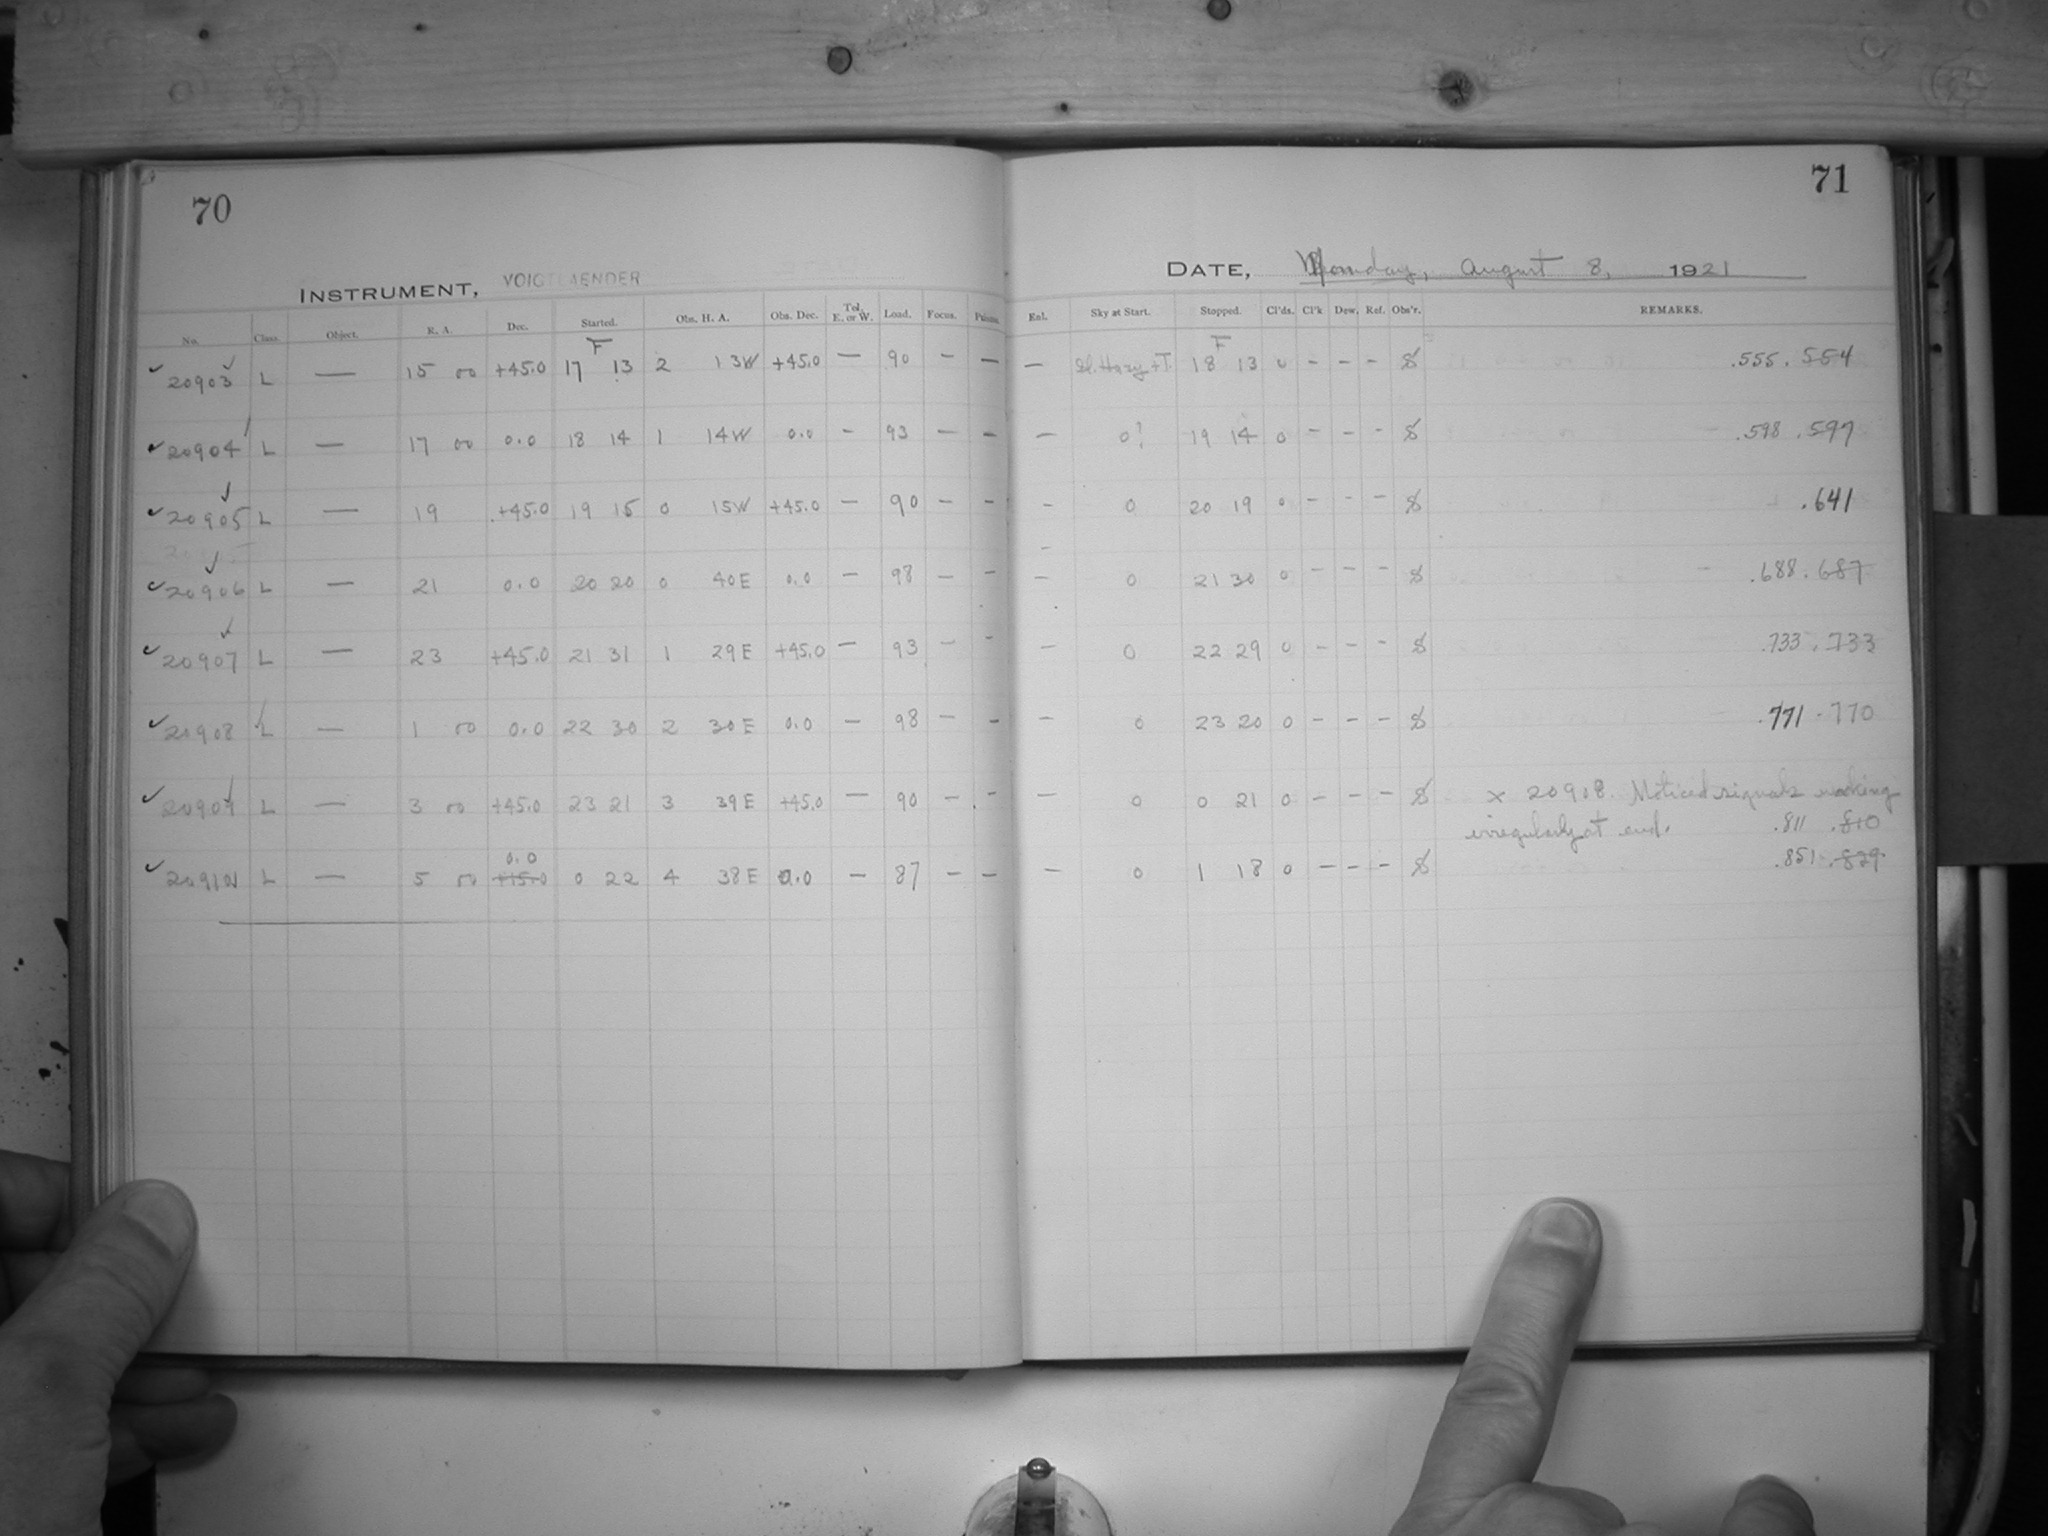 70
71
INSTRUMENT, VOIGTLAENDER
DATE, Monday, August 8, 1921
No. Class. Object. R. A. Dec. Started. Obs. H. A. Obs. Dec. Tel. E. or W. Load. Focus. Enl. Sky at Start. Stopped. Cl'ds. Cl'k Dew. Ref. Obs'r. REMARKS.
F F
20903 L — 15 00 +45.0 17 13 2 13W +45.0 — 90 – — — Sl. Hazy +T. 18 13 0 - - - .555 .554
20904 L — 17 00 0.0 18 14 1 14W 0.0 – 93 – – — 0? 19 14 0 - - - .598 .597
20905 L — 19 +45.0 19 15 0 15W +45.0 — 90 – – – 0 20 19 0 - - - .641
20906 L — 21 0.0 20 20 0 40E 0.0 — 98 – – — 0 21 30 0 - - - .688 .687
20907 L — 23 +45.0 21 31 1 29E +45.0 — 93 – – — 0 22 29 0 - - - .733 .733
20908 L — 1 00 0.0 22 30 2 30E 0.0 — 98 – – — 0 23 20 0 - - - .771 .770
20909 L — 3 00 +45.0 23 21 3 39E +45.0 — 90 – – — 0 0 21 0 - - - x 20908. Noticed signals working
irregularly at end. .811 .810
0.0
20910 L — 5 00 +15.0 0 22 4 38E 0.0 — 87 – – — 0 1 18 0 - - - .851 .829